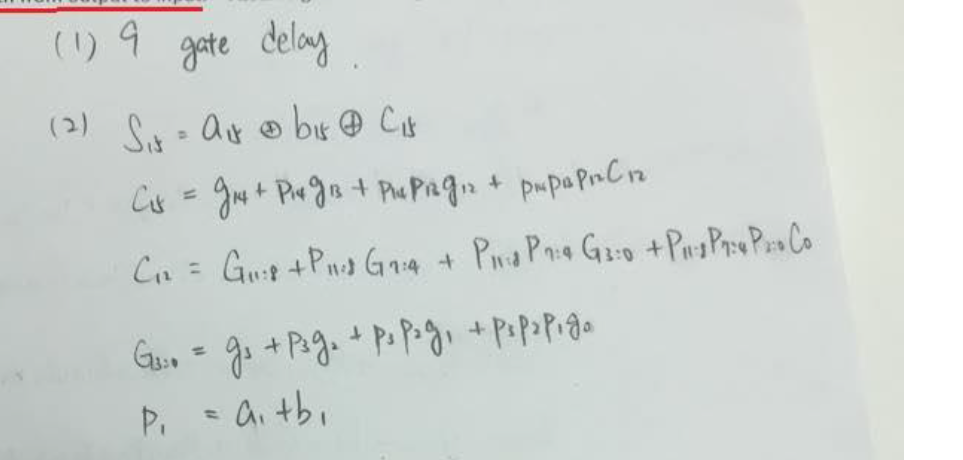 (1) 9 gate delay.
(2) S₁₅ = a₁₅ ⊕ b₁₅ ⊕ C₁₅
C₁₅ = g₁₄ + P₁₄g₁₃ + P₁₄P₁₃g₁₂ + P₁₄P₁₃P₁₂C₁₂
C₁₂ = G₁₁:₈ + P₁₁:₈ G₇:₄ + P₁₁:₈ P₇:₄ G₃:₀ + P₁₁:₈ P₇:₄ P₃:₀ C₀
G₃:₀ = g₃ + P₃g₂ + P₃P₂g₁ + P₃P₂P₁g₀
P₁ = a₁ + b₁